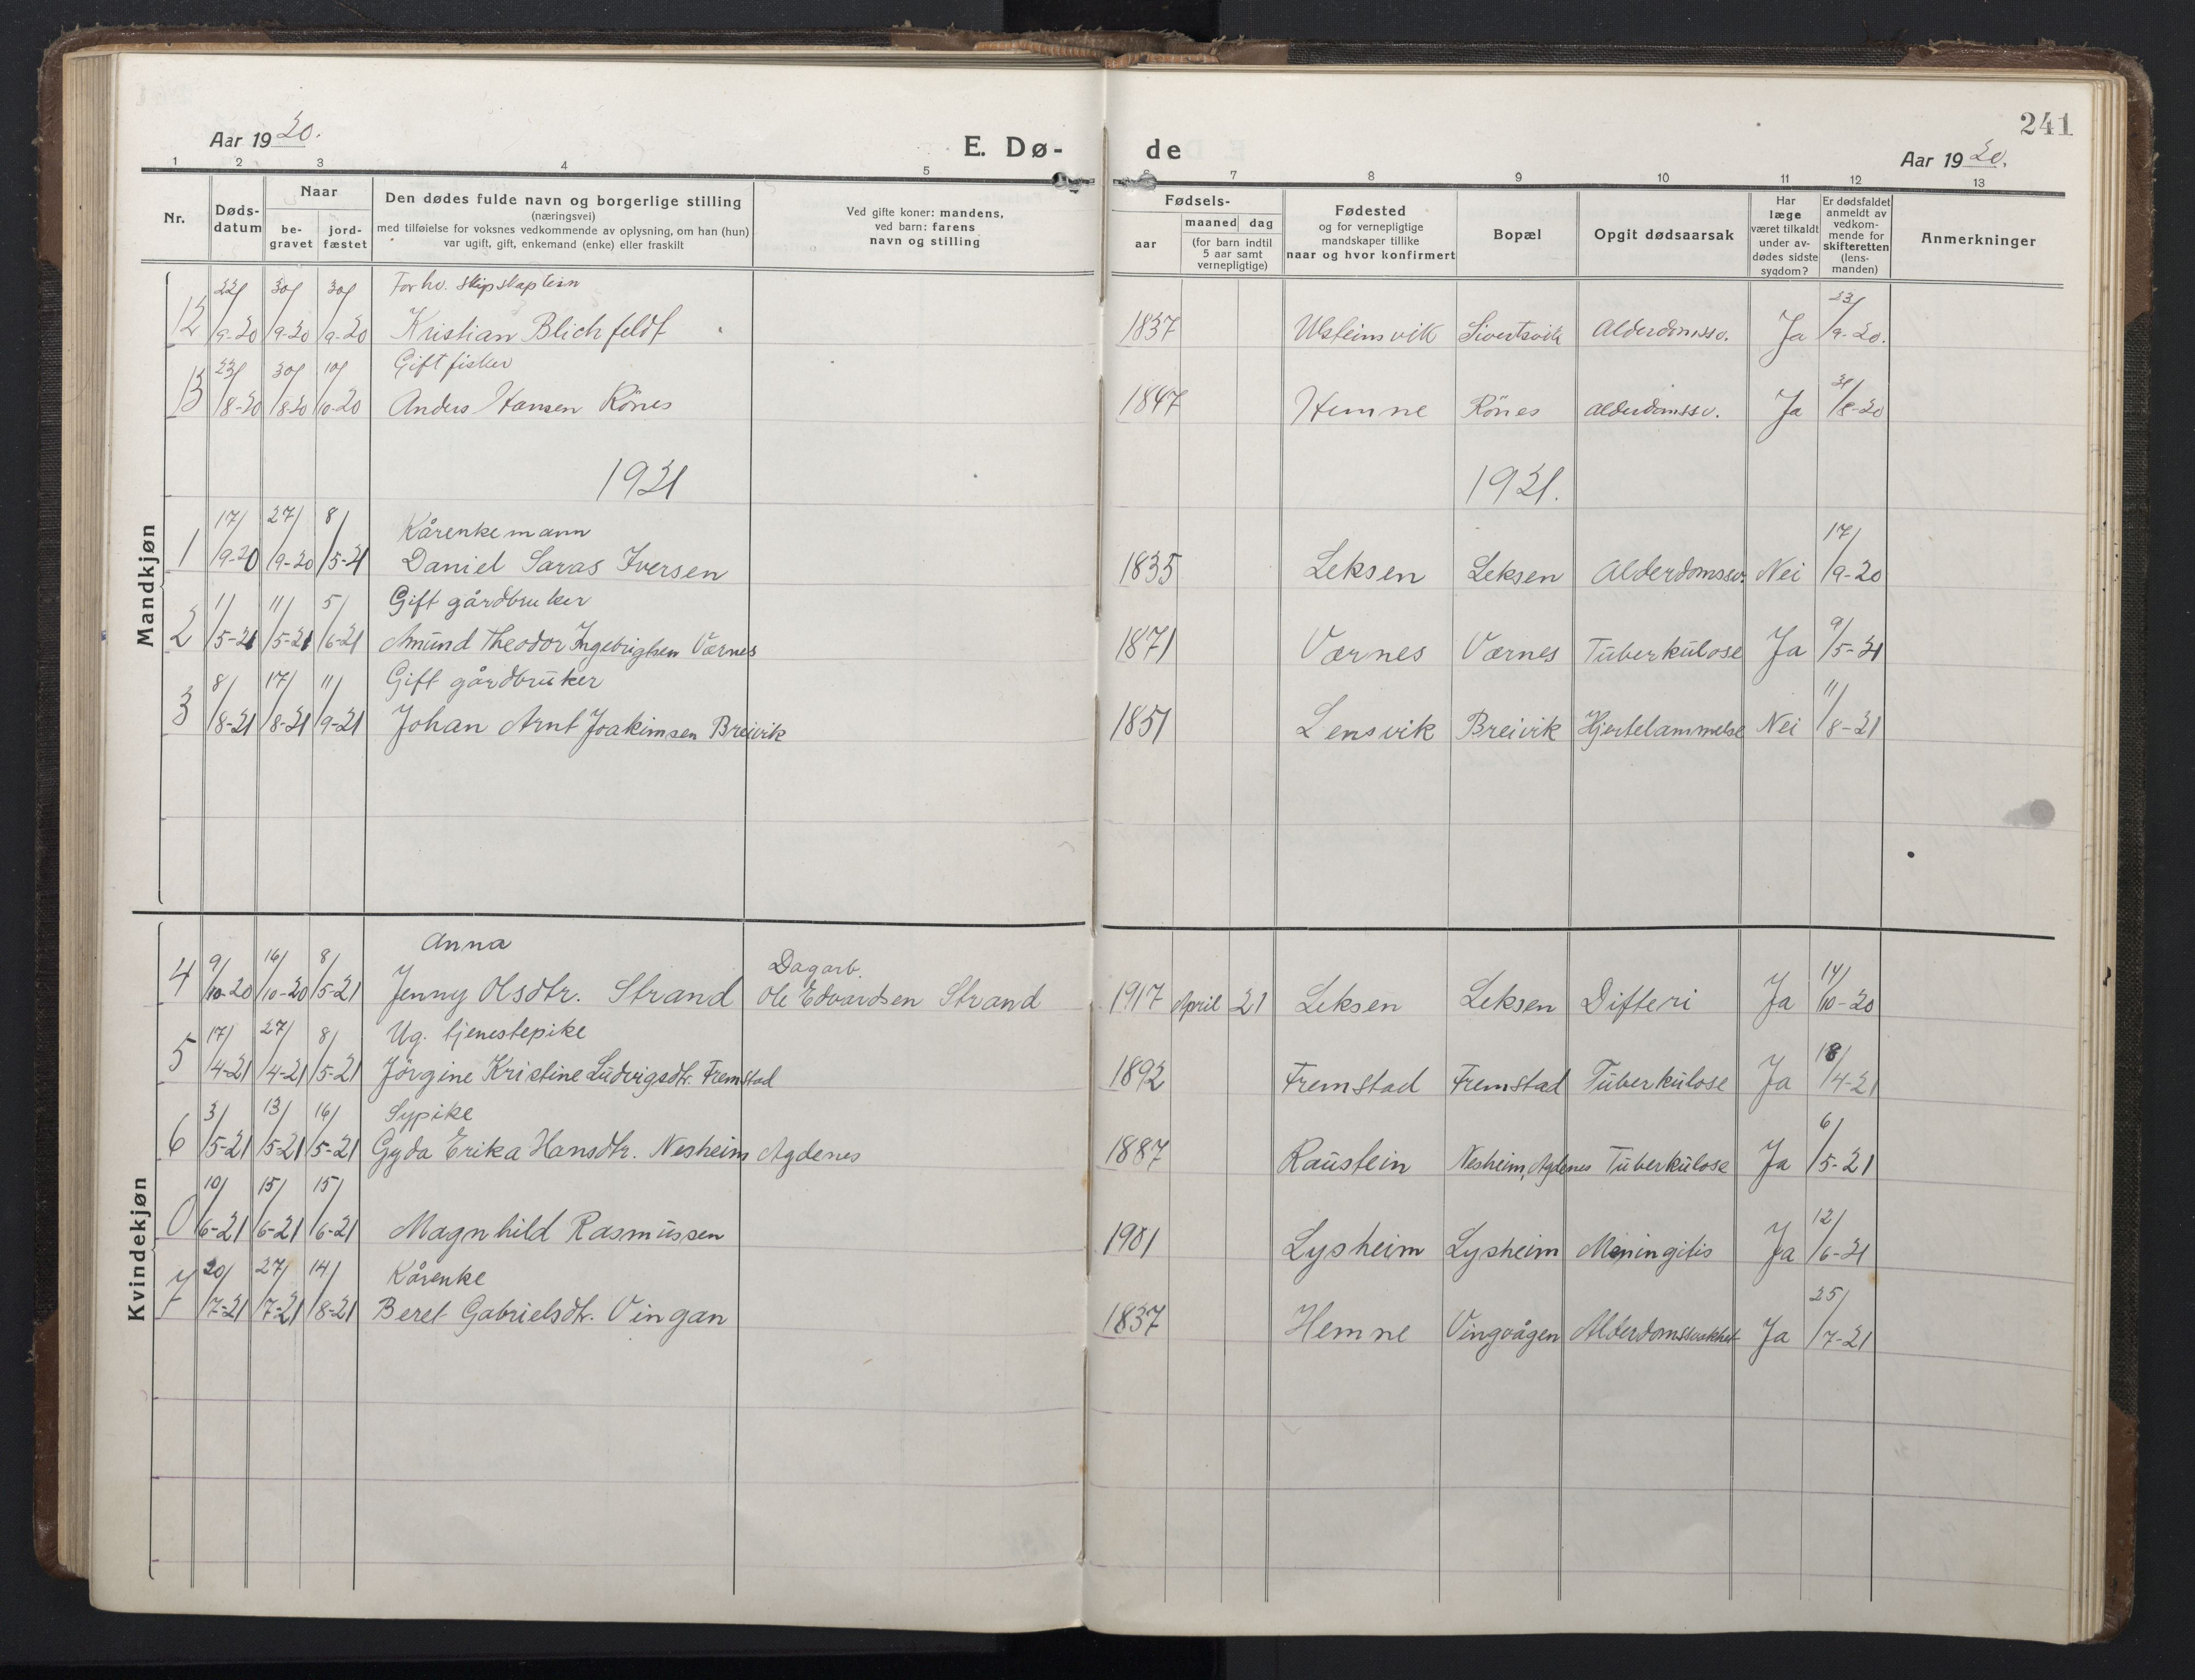 241
Aar 1920.
E. Dø-
de
Aar 1920.
1 2 3 4 5 6 7 8 9 10 11 12 13
Nr.
Døds-
datum
Naar
be-
gravet
jord-
fæstet
Den dødes fulde navn og borgerlige stilling
(næringsvei)
med tilføielse for voksnes vedkommende av oplysning, om han (hun)
var ugift, gift, enkemand (enke) eller fraskilt
Ved gifte koner: mandens,
ved barn: farens
navn og stilling
Fødsels-
aar
maaned dag
(for barn indtil
5 aar samt
vernepligtige)
Fødested
og for vernepligtige
mandskaper tillike
naar og hvor konfirmert
Bopæl
Opgit dødsaarsak
Har
læge
været tilkaldt
under av-
dødes sidste
sygdom?
Er dødsfaldet
anmeldt av
vedkom-
mende for
skifteretten
(lens-
manden)
Anmerkninger
Mandkjøn
22/ 30/ 30/ Forhv. skipskaptein 23/
12 /9-20 /9-20 /9-20 Kristian Blichfeldt 1837 Ulsteinsvik Sivertsvik Alderdomssv. Ja /9-20.
23/ 30/ 10/ Gift fisker 31/
13 /8-20 /8-20 /10-20 Anders Hansen Rönes 1847 Hemne Rönes Alderdomssv. Ja /8-20
1921 1921.
17/ 27/ 8/ Kårenkemann 17/
1 /9-20 /9-20 /5-21 Daniel Saras Iversen 1835 Leksen Leksen Alderdomssv. Nei /9-20
1/ 11/ 5/ Gift gårdbruker 9/
2 /5-21 /5-21 /6-21 Amund Theodor Ingebrigtsen Værnes 1871 Værnes Værnes Tuberkulose Ja /5-21
8/ 17/ 11/ Gift gårdbruker 11/
3 /8-21 /8-21 /9-21 Johan Arnt Joakimsen Breivik 1851 Lensvik Breivik Hjertelammelse Nei /8-21
Kvindekjøn
9/ 16/ 8/ Anna Dagarb. 14/
4 /10-20 /10-20 /5-21 Jenny Olsdtr. Strand Ole Edvardsen Strand 1917 April 21 Leksen Leksen Difteri Ja /10-20
17/ 27/ 8/ Ug. tjenestepike 18/
5 /4-21 /4-21 /5-21 Jörgine Kristine Ludvigsdtr. Fremstad 1892 Fremstad Fremstad Tuberkulose Ja /4-21
3/ 13/ 16/ Sypike 6/
6 /5-21 /5-21 /5-21 Gyda Erika Hansdtr. Nesheim Agdenes 1887 Raustein Nesheim, Agdenes Tuberkulose Ja /5-21
10/ 15/ 15/ 12/
0 /6-21 /6-21 /6-21 Magnhild Rasmussen 1901 Lysheim Lysheim Meningitis Ja /6-21
20/ 27/ 14/ Kårenke 25/
7 /7-21 /7-21 /8-21 Beret Gabrielsdtr. Vingan 1837 Hemne Vingvågen Alderdomssvakhet Ja /7-21